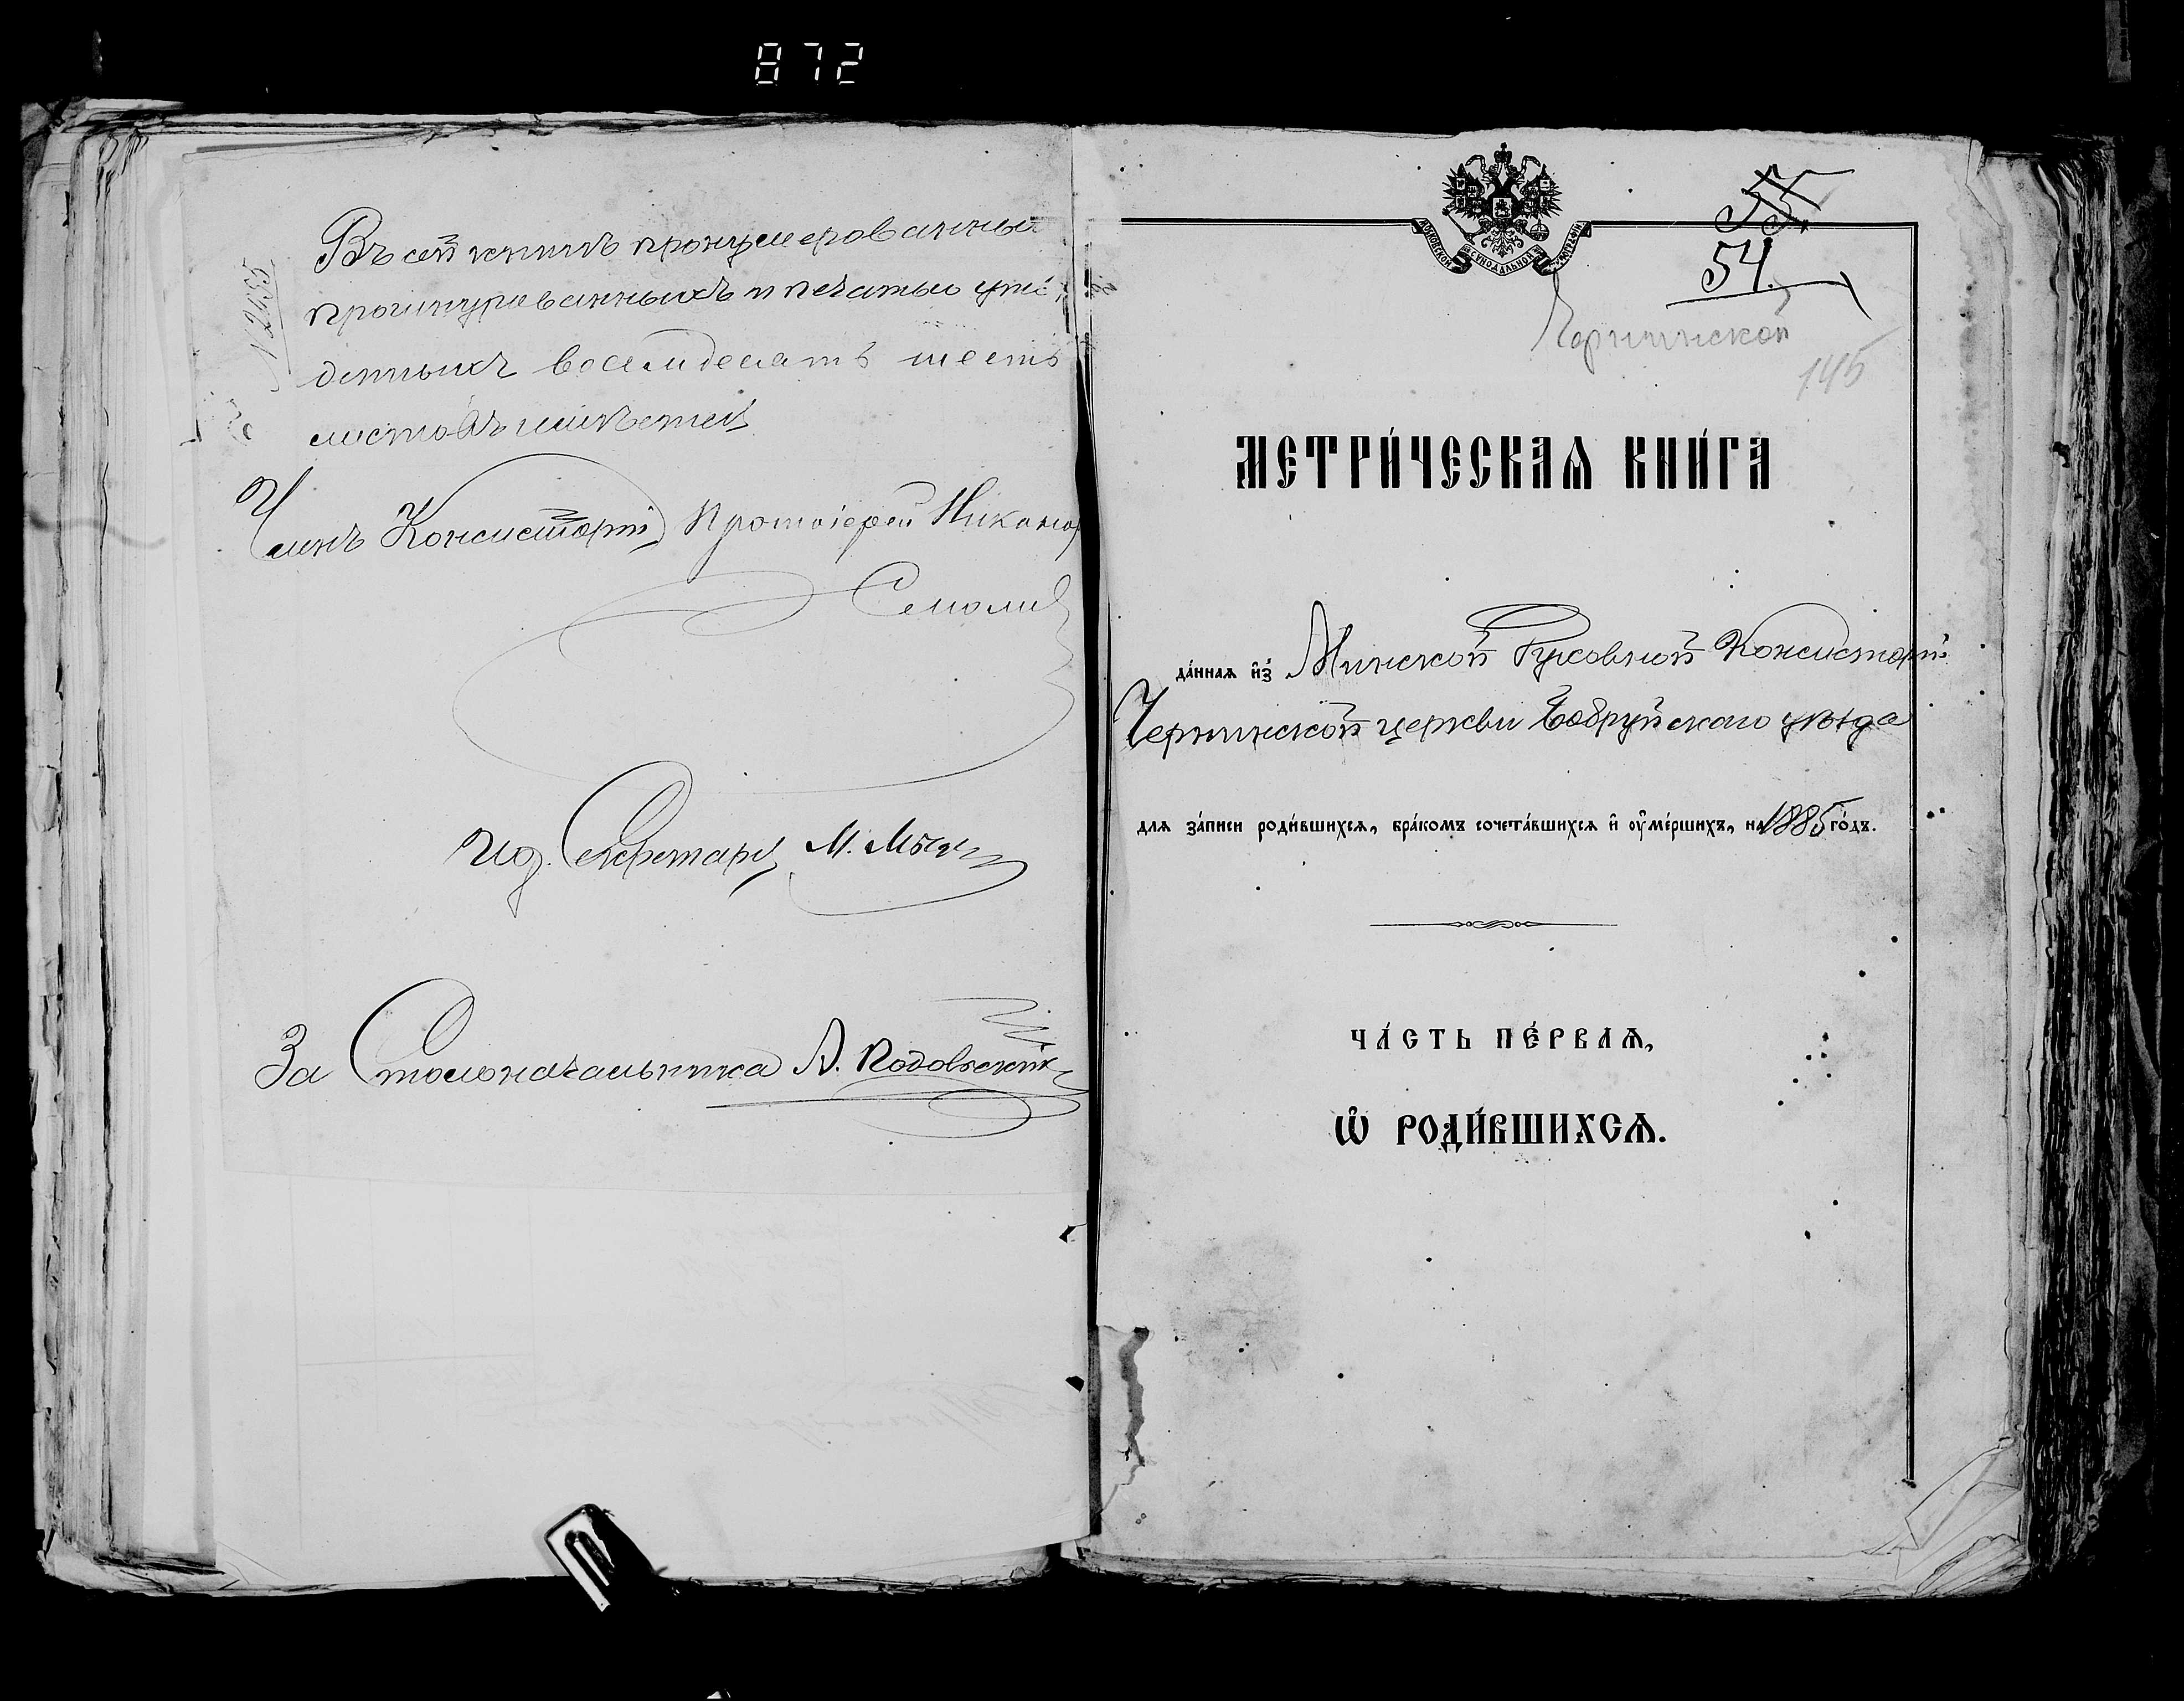 872
Въ сей книгѣ пронумерованныхъ
прошнурованныхъ и печатью
восемдесятъ шесть
листовъ имѣется
Членъ Консисторіи Протоіерей Никанор
И.д. Секретаря М.
За Столоначальника А.
№ 2435
МОСКОВСКОЙ СѴНОДАЛЬНОЙ ТИПОГРАФІИ
55
54.
Чернинской
145
МЕТРИ́ЧЕСКАѦ КНИ́ГА
да́ннаѧ и҆з̾ Минской Духовной Консисторіи
Чернинской церкви Бобруйскаго уѣзда
длѧ за́писи роди́вшихсѧ, бра́комъ сочета́вшихсѧ и҆ ᲂу҆ме́ршихъ, на 1885 го́дъ.
ЧА́СТЬ ПЕ́РВАѦ,
Ѡ҆ РОДИ́ВШИХСѦ.